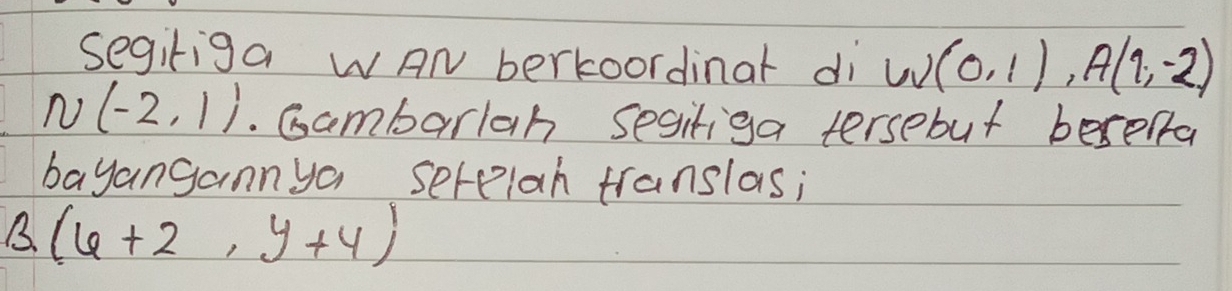 Segitiga WAN berkoordinat di W(0,1), A(1,-2)
N(-2,1). Gambarlah segitiga tersebut beserta
bayangannya setelah translasi
B. (6+2, y+4)